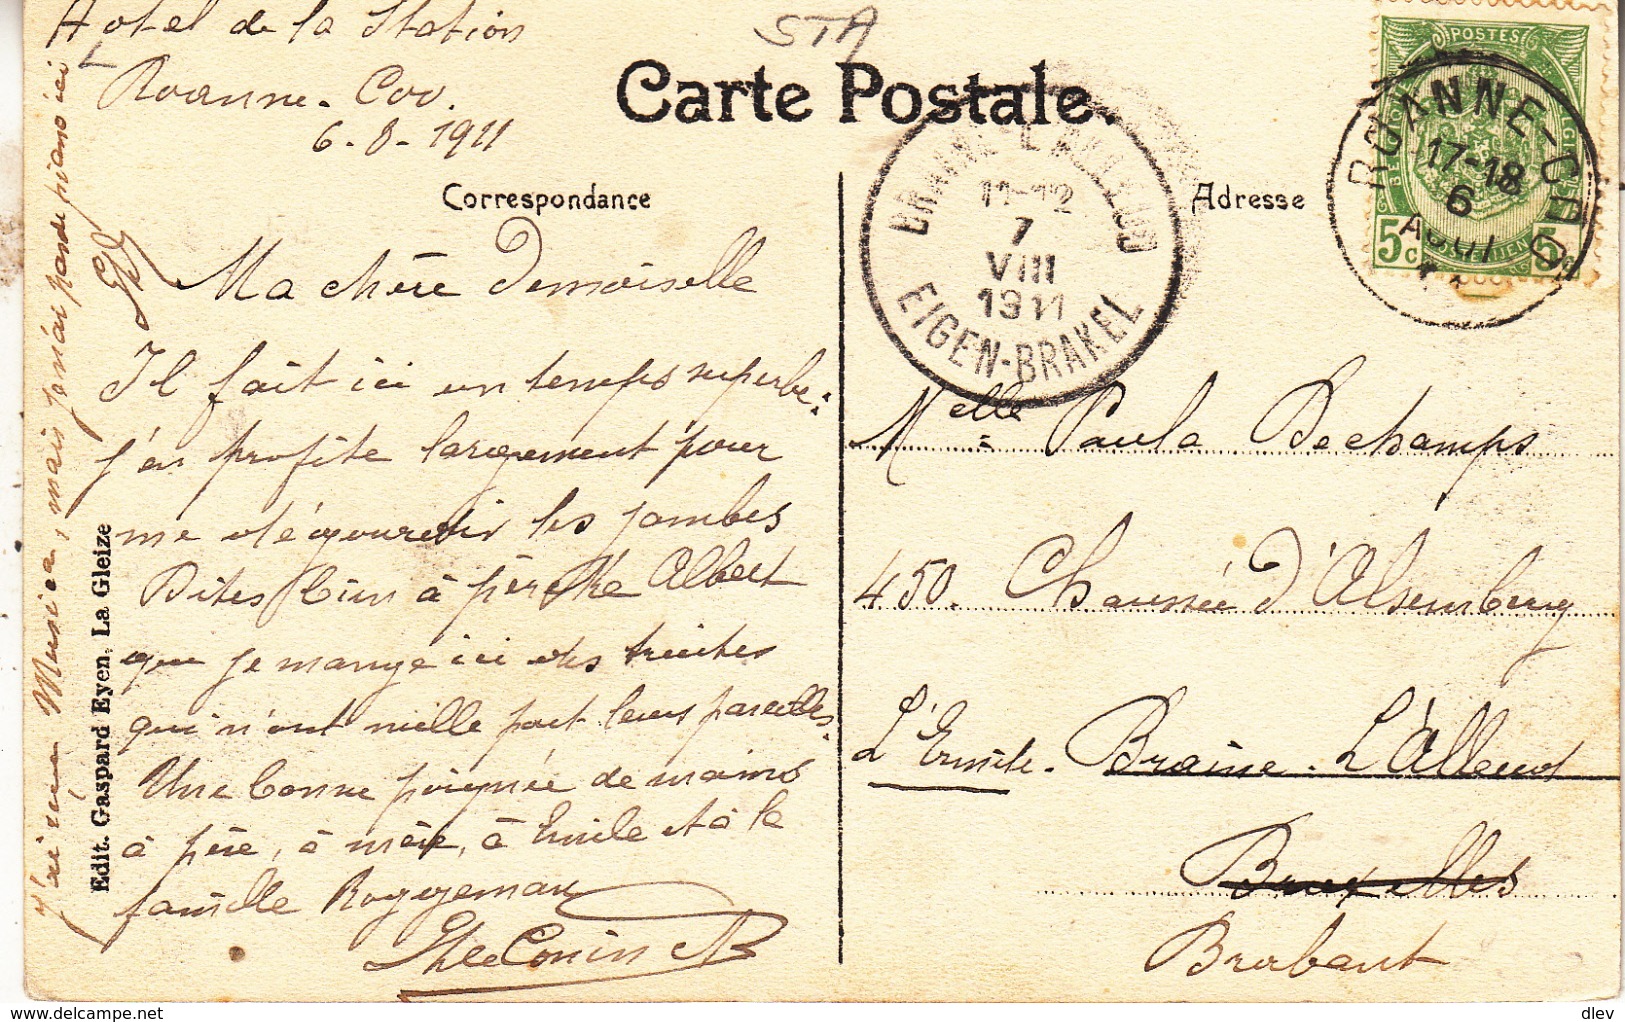 Hotel de la Station
Roanne-Coo.
6-8-1911
STA
Carte Postale.
Correspondance
Adresse
Ma chère Demoiselle
Il fait ici un temps superbe:
j'en profite largement pour
me dégourdir les jambes
Dites bien à père Albert
que je mange ici des truites
qui n'ont nulle part leurs pareilles.
Une bonne poignée de mains
à père, à mère, à Emile et à la
famille Roggeman
J'ai vu Musica, mais
pas de piano ici
Edit. Gaspard Eyen, La Gleize
BRAINE-L'ALLEUD
11-12
7
VIII
1911
EIGEN-BRAKEL
POSTES
5c
5c
ROANNE-COO
17-18
6
AOUT
Melle Paula Dechamps
450. Chaussée d'Alsemberg
L'Ermite. Braine-L'Alleud
Bruxelles
Brabant
delcampe.net
dlev